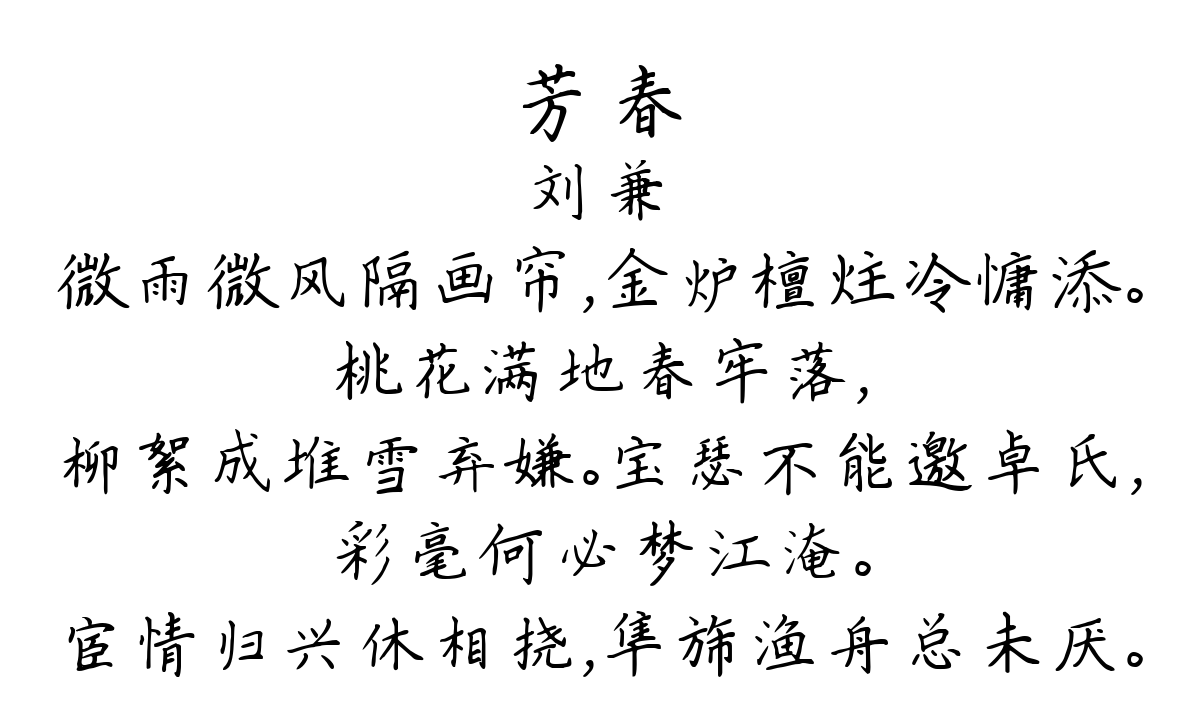 芳春
刘兼
微雨微风隔画帘,金炉檀炷冷慵添。
桃花满地春牢落,
柳絮成堆雪弃嫌。宝瑟不能邀卓氏,
彩毫何必梦江淹。
宦情归兴休相挠,隼旆渔舟总未厌。